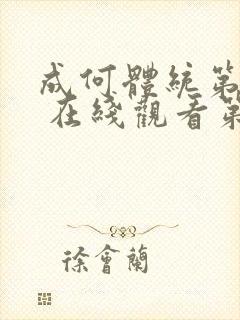 成何體統第
在綫觀看第
徐會蘭